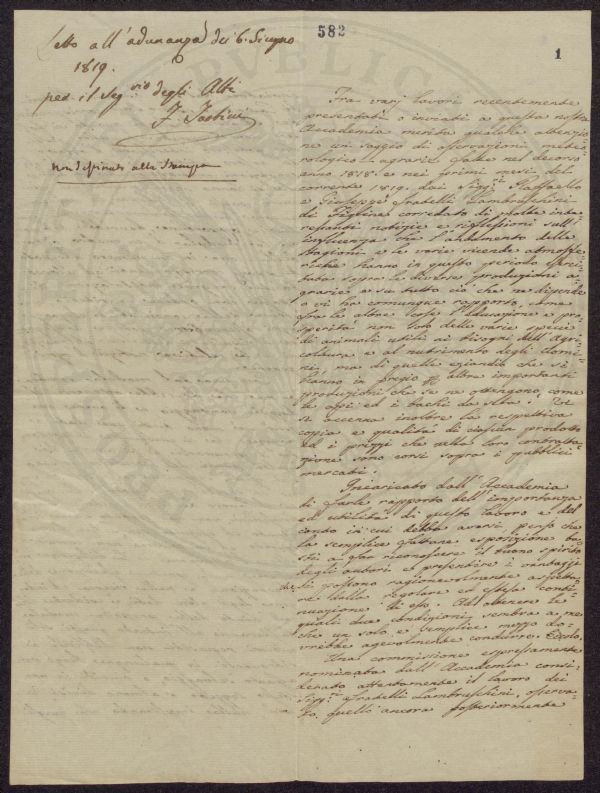 582
1
Letto all'adunanza de' 6. Giugno
1819.
per il Seg.rio degli Atti
F. Tartini
non destinato alla Stampa
Tra varj lavori recentemente
presentati o inviati a questa nostra
Accademia merita qualche attenzio-
ne un saggio di osservazioni meteo-
rologico-agrarie fatte nel decorso
anno 1818 e nei primi mesi del
corrente 1819. dai Sigg.ri Raffaello
e Giuseppe fratelli Lambruschini
di Figline corredato di molte inte-
ressanti notizie e riflessioni sull'
influenza che l'andamento delle
stagioni e le varie vicende atmosfe-
riche hanno in questo periodo eserci-
tata sopra le diverse produzioni a-
grarie e su tutto ciò che ne dipende
o vi ha comunque rapporto, come
fra le altre cose l'educazione e pro-
sperità non solo delle varie specie
di animali utili ai bisogni dell'Agri-
coltura e al nutrimento degli Uomi-
ni, ma di quelle eziandio che si
hanno in pregio per altre importanti
produzioni che se ne ottengono, come
le api ed i bachi da seta. Vi
si accenna inoltre la respettiva
copia e qualità di ciascun prodotto
ed i prezzi che nella loro contratta-
zione sono corsi sopra i pubblici
mercati.
Incaricato dall'Accademia
di farle rapporto dell'importanza
ed utilità di questo lavoro e del
conto in cui debba aversi, penso che
la semplice fattane esposizione ba-
sti a far riconoscere il buono spirito
degli autori e presentire i vantaggi
che si possono ragionevolmente aspetta-
re dalla regolare ed estesa conti-
nuazione di esso. Ad ottenere le
quali due condizioni sembra a me
che un solo e semplice mezzo do-
vrebbe agevolmente condurre. Eccolo.
Una commissione espressamente
nominata dall'Accademia consi-
derato attentamente il lavoro dei
Sigg.ri Fratelli Lambruschini, osserva-
to quelli ancora posteriormente